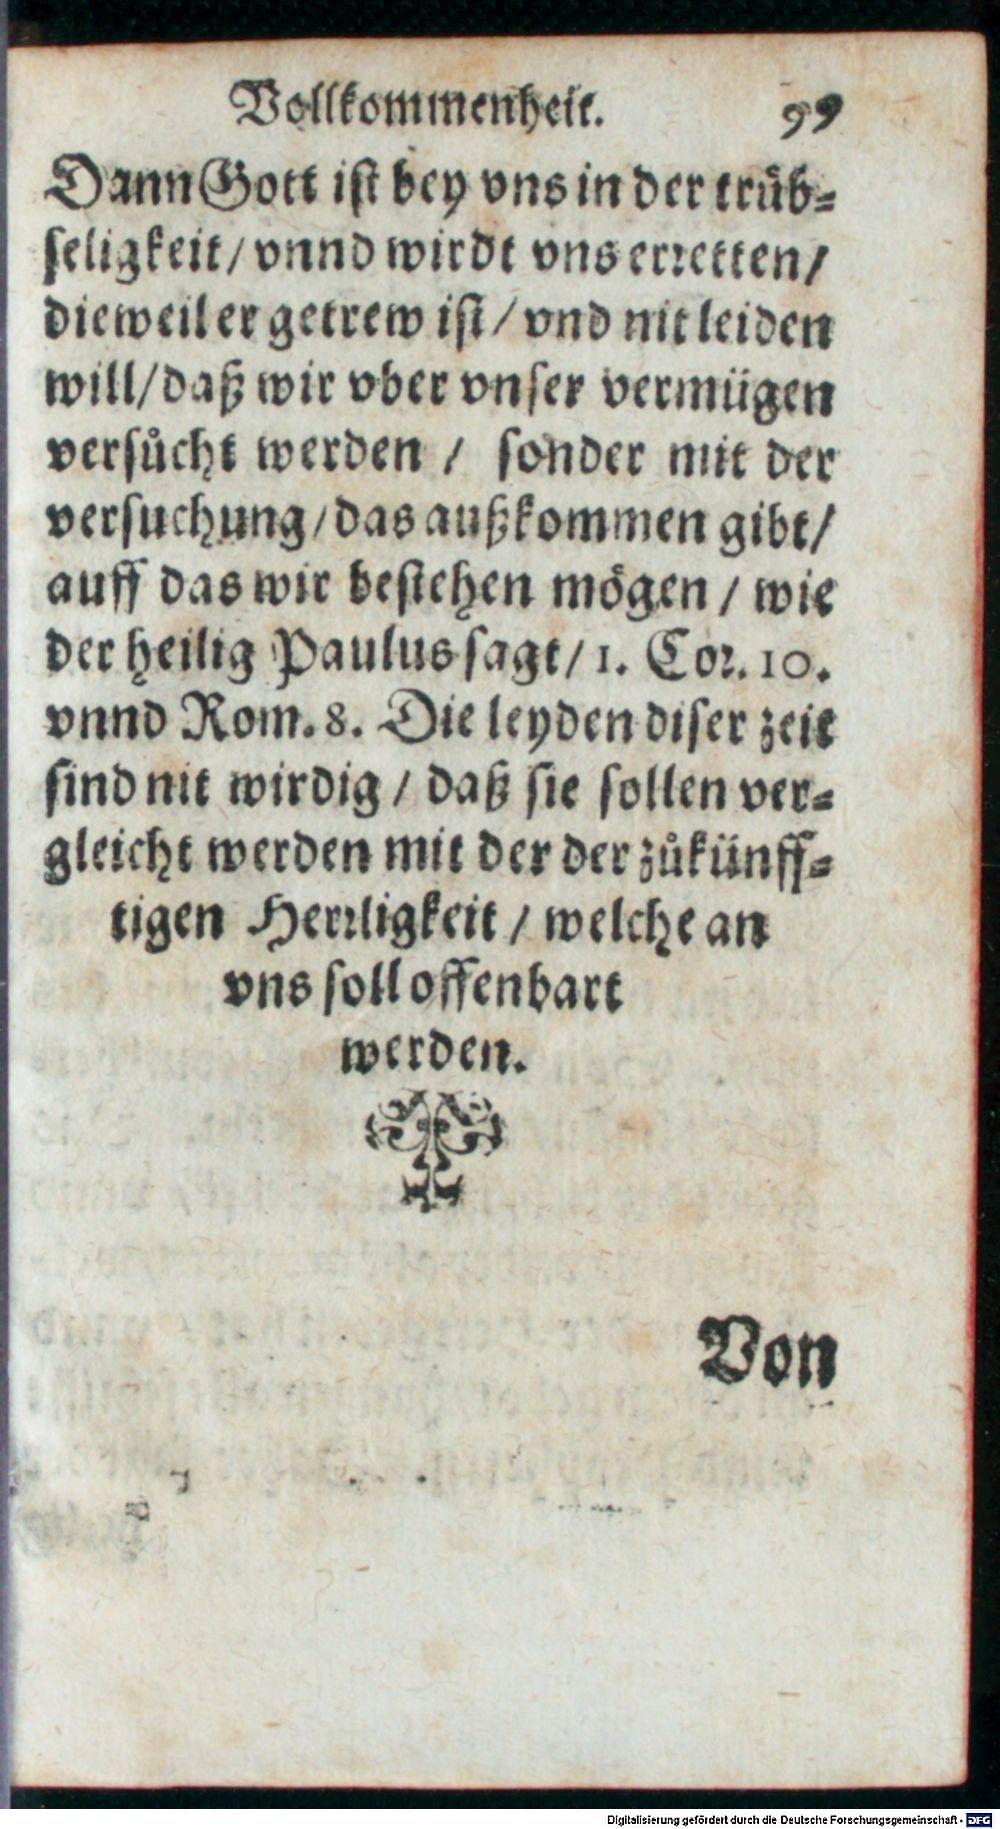 Vollkommenheit. 99
Dann Gott ist bey vns in der trüb-
seligkeit/ vnnd wirdt vns erretten/
dieweil er getrew ist/ vnd nit leiden
will/ daß wir vber vnser vermügen
versůcht werden / sonder mit der
versuchung/ das außkommen gibt/
auff das wir bestehen mögen / wie
der heilig Paulus sagt/ 1. Cor. 10.
vnnd Rom. 8. Die leyden diser zeit
sind nit wirdig / daß sie sollen ver-
gleicht werden mit der der zůkünff-
tigen Herrligkeit / welche an
vns soll offenbart
werden.
Von
Digitalisierung gefördert durch die Deutsche Forschungsgemeinschaft - DFG